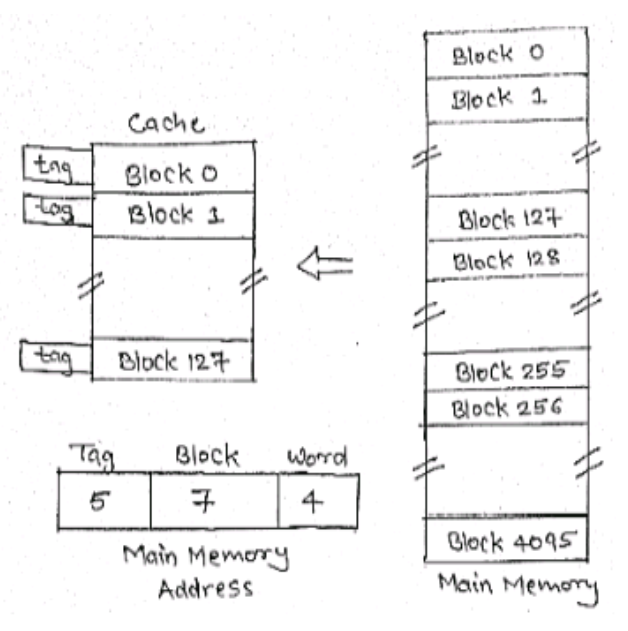 Cache
tag
Block 0
tag
Block 1
tag
Block 127
Tag
Block
Word
5
7
4
Main Memory
Address
Block 0
Block 1
Block 127
Block 128
Block 255
Block 256
Block 4095
Main Memory